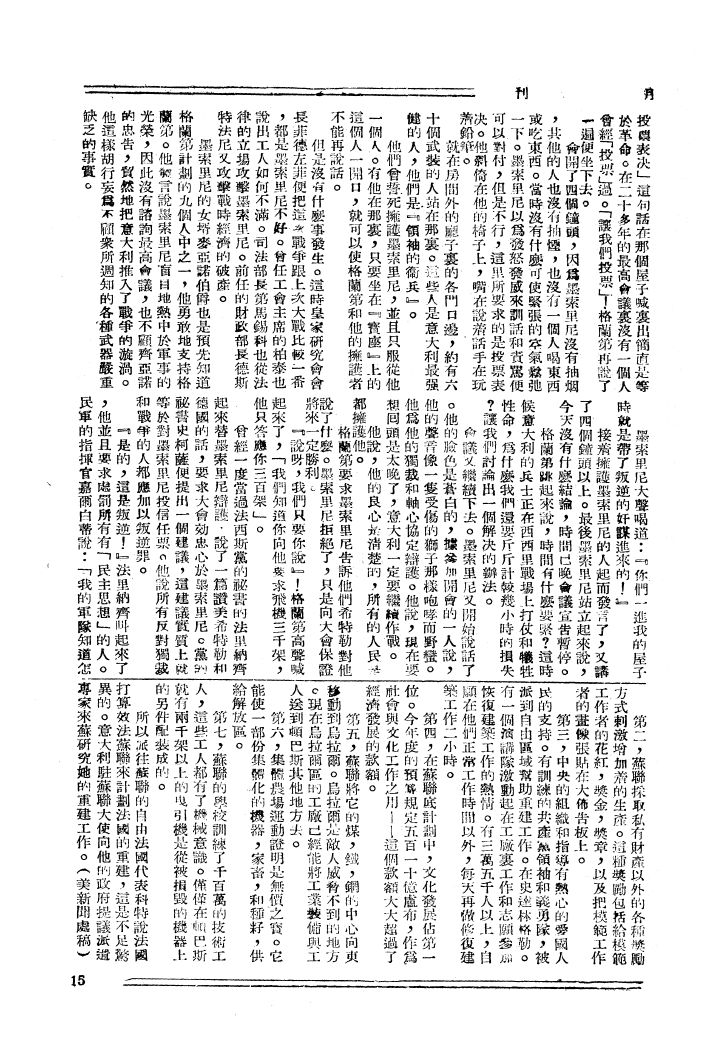 月刊
投票表決」這句話在那個屋子喊裏出簡直是等
於革命。在二十多年的最高會議裏沒有一個人
曾經「投票」過。「讓我們投票」!格蘭第再說了
一遍便坐下去。
會開了四個鐘頭，因爲墨索里尼沒有抽烟
，其他的人也沒有抽烟，也沒有一個人喝東西
或吃東西。當時沒有什麽可使緊張的空氣鬆弛
一下。墨索里尼以爲發怒發威來訓話和責駡便
可以對付，但是不行，這里所要求的是投票表
決。他斜倚在他的椅子上，嘴在說着話手在玩
着鉛筆。
就在房間外的廳子裏的各門口邊，約有六
十個武裝的人站在那裏。這些人是意大利最强
健的人，他們是『領袖的衛兵』。
他們曾誓死擁護墨索里尼，並且只服從他
一個人。有他在那裏，只要坐在『寶座』上的
這個人一開口，就可以使格蘭第和他的擁護者
不能再說話。
但是沒有什麽事發生。這時皇家研究會會
長菲德左菲便把這次戰爭跟上次大戰比較一番
，都是墨索里尼不好。曾任工會主席的柏泰也
說出工人如何不滿。司法部長第馬錫科也從法
律的立場攻擊墨索里尼。前任的財政部長德斯
特法尼又攻擊戰時經濟的破產。
墨索里尼的女婿麥亞諾伯爵也是預先知道
格蘭第計劃的九個人中之一，他勇敢地支持格
蘭第。他宣言說墨索里尼盲目地熱中於軍事的
光榮，因此沒有諮詢最高會議，也不顧齊亞諾
的忠告，貿然地把意大利推入了戰爭的漩渦。
他這樣胡行妄爲不顧衆所週知的各種武器嚴重
缺乏的事實。
墨索里尼大聲喝道：『你們一進我的屋子
時就是帶了叛逆的奸謀進來的！』
接着擁護墨索里尼的人起而發言了，又講
了四個鐘頭以上。最後墨索里尼站立起來說，
今天沒有什麽結論，時間已晚會議宣告暫停。
格蘭第跳起來說，時間有什麽要緊？這時
候意大利的兵士正在西西里戰場上打仗和犧牲
性命，爲什麽我們還要斤斤計較幾小時的損失
？讓我們討論出一個解決的辦法。
會議又繼續下去。墨索里尼又開始說話了
。他的臉色是蒼白的，據參加開會的一人說，
他的聲音像一隻受傷的獅子那樣咆哮而野蠻。
他爲他的獨裁和軸心協定辯護。他說，現在要
想回頭是太晚了，意大利一定要繼續作戰。
他說，他的良心是清楚的，所有的人民
都擁護他。
格蘭第要求墨索里尼告訴他們希特勒對他
說了什麽。墨索里尼拒絕了，只是向大會保證
將來一定勝利。
『說呀，我們只要你說』！格蘭第高聲喊
起來了，「我們知道你向他要求飛機三千架，
他只答應你三百架」。
曾經一度當過法西斯黨的祕書的法里納齊
起來替墨索里尼辯護，說了一篇讚美希特勒和
德國的話，要求大會効忠心於墨索里尼。黨的
祕書史柯薩便提出一個建議，這建議實質上就
等於對墨索里尼投信任票。他說所有反對獨裁
和戰爭的人都應加以叛逆罪。
『是的，這是叛逆！』法里納齊叫起來了
，他並且要求處罰所有有「民主思想」的人。
民軍的指揮官嘉爾白蒂說：「我的軍隊知道怎
第二，蘇聯採取私有財產以外的各種獎勵
方式刺激增加着的生產。這種獎勵包括給模範
工作者的花紅，獎金，獎章，以及把模範工作
者的畫像張貼在大佈告板上。
第三，中央的組織和指導有熱心的愛國人
民的支持。有訓練的共產黨領袖和義勇隊，被
派到自由區域幫助重建工作。在史達林格勒。
有一個演講隊激動起在工廠裏工作和志願參加
恢復建築工作的熱情。有三萬五千人以上，自
願在他們正常工作時間以外，每天再做修復建
築工作二小時。
第四，在蘇聯底計劃中，文化發展佔第一
位。今年度的預算規定五百一十億盧布，作爲
社會與文化工作之用——這個款額大大超過了
經濟發展的款額。
第五，蘇聯將它的煤，鐵，鋼的中心向東
移動到烏拉爾。烏拉爾是敵人威脅不到的地方
。現在烏拉爾區的工廠已經能將工業裝備與工
人送到頓巴斯其他地方去。
第六，集體農場運動證明是無價之寶。它
能使一部份集體化的機器，家畜，和種籽，供
給解放區。
第七，蘇聯的學校訓練了千百萬的技術工
人，這些工人都有了機械意識。僅僅在頓巴斯
就有兩千架以上的曳引機是從被損毀的機器上
的另件配裝成的。
所以派往蘇聯的自由法國代表科特說法國
打算效法蘇聯來計劃法國的重建，這是不足驚
異的。意大利駐蘇聯大使向他的政府提議派遣
專家來蘇研究她的重建工作。（美新聞處稿）
15